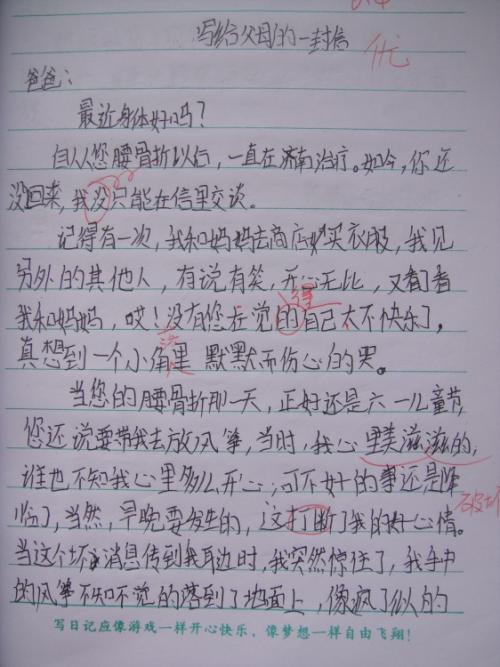 写给父母的一封信
优
爸爸：
最近身体好吗？
自从您腰骨折以后，一直在济南治疗。如今，你还
没回来，我没只能在信里交谈。
记得有一次，我和妈妈去商店买衣服，我见
另外的其他人，有说有笑，开心无比，又看看
我和妈妈，哎！没有您在觉的自己太不快乐了，
真想到一个小角里默默而伤心的哭。
当您的腰骨折那一天，正好还是六一儿童节，
您还说要带我去放风筝，当时，我心里美滋滋的，
谁也不知我心里多么开心，可不好的事还是降
破坏
临了，当然，早晚要发生的，这打断了我的好心情。
当这个坏消息传到我耳边时，我突然惊住了，我手中
的风筝不知不觉的落到了地面上，像疯了似的
写日记应像游戏一样开心快乐，像梦想一样自由飞翔！